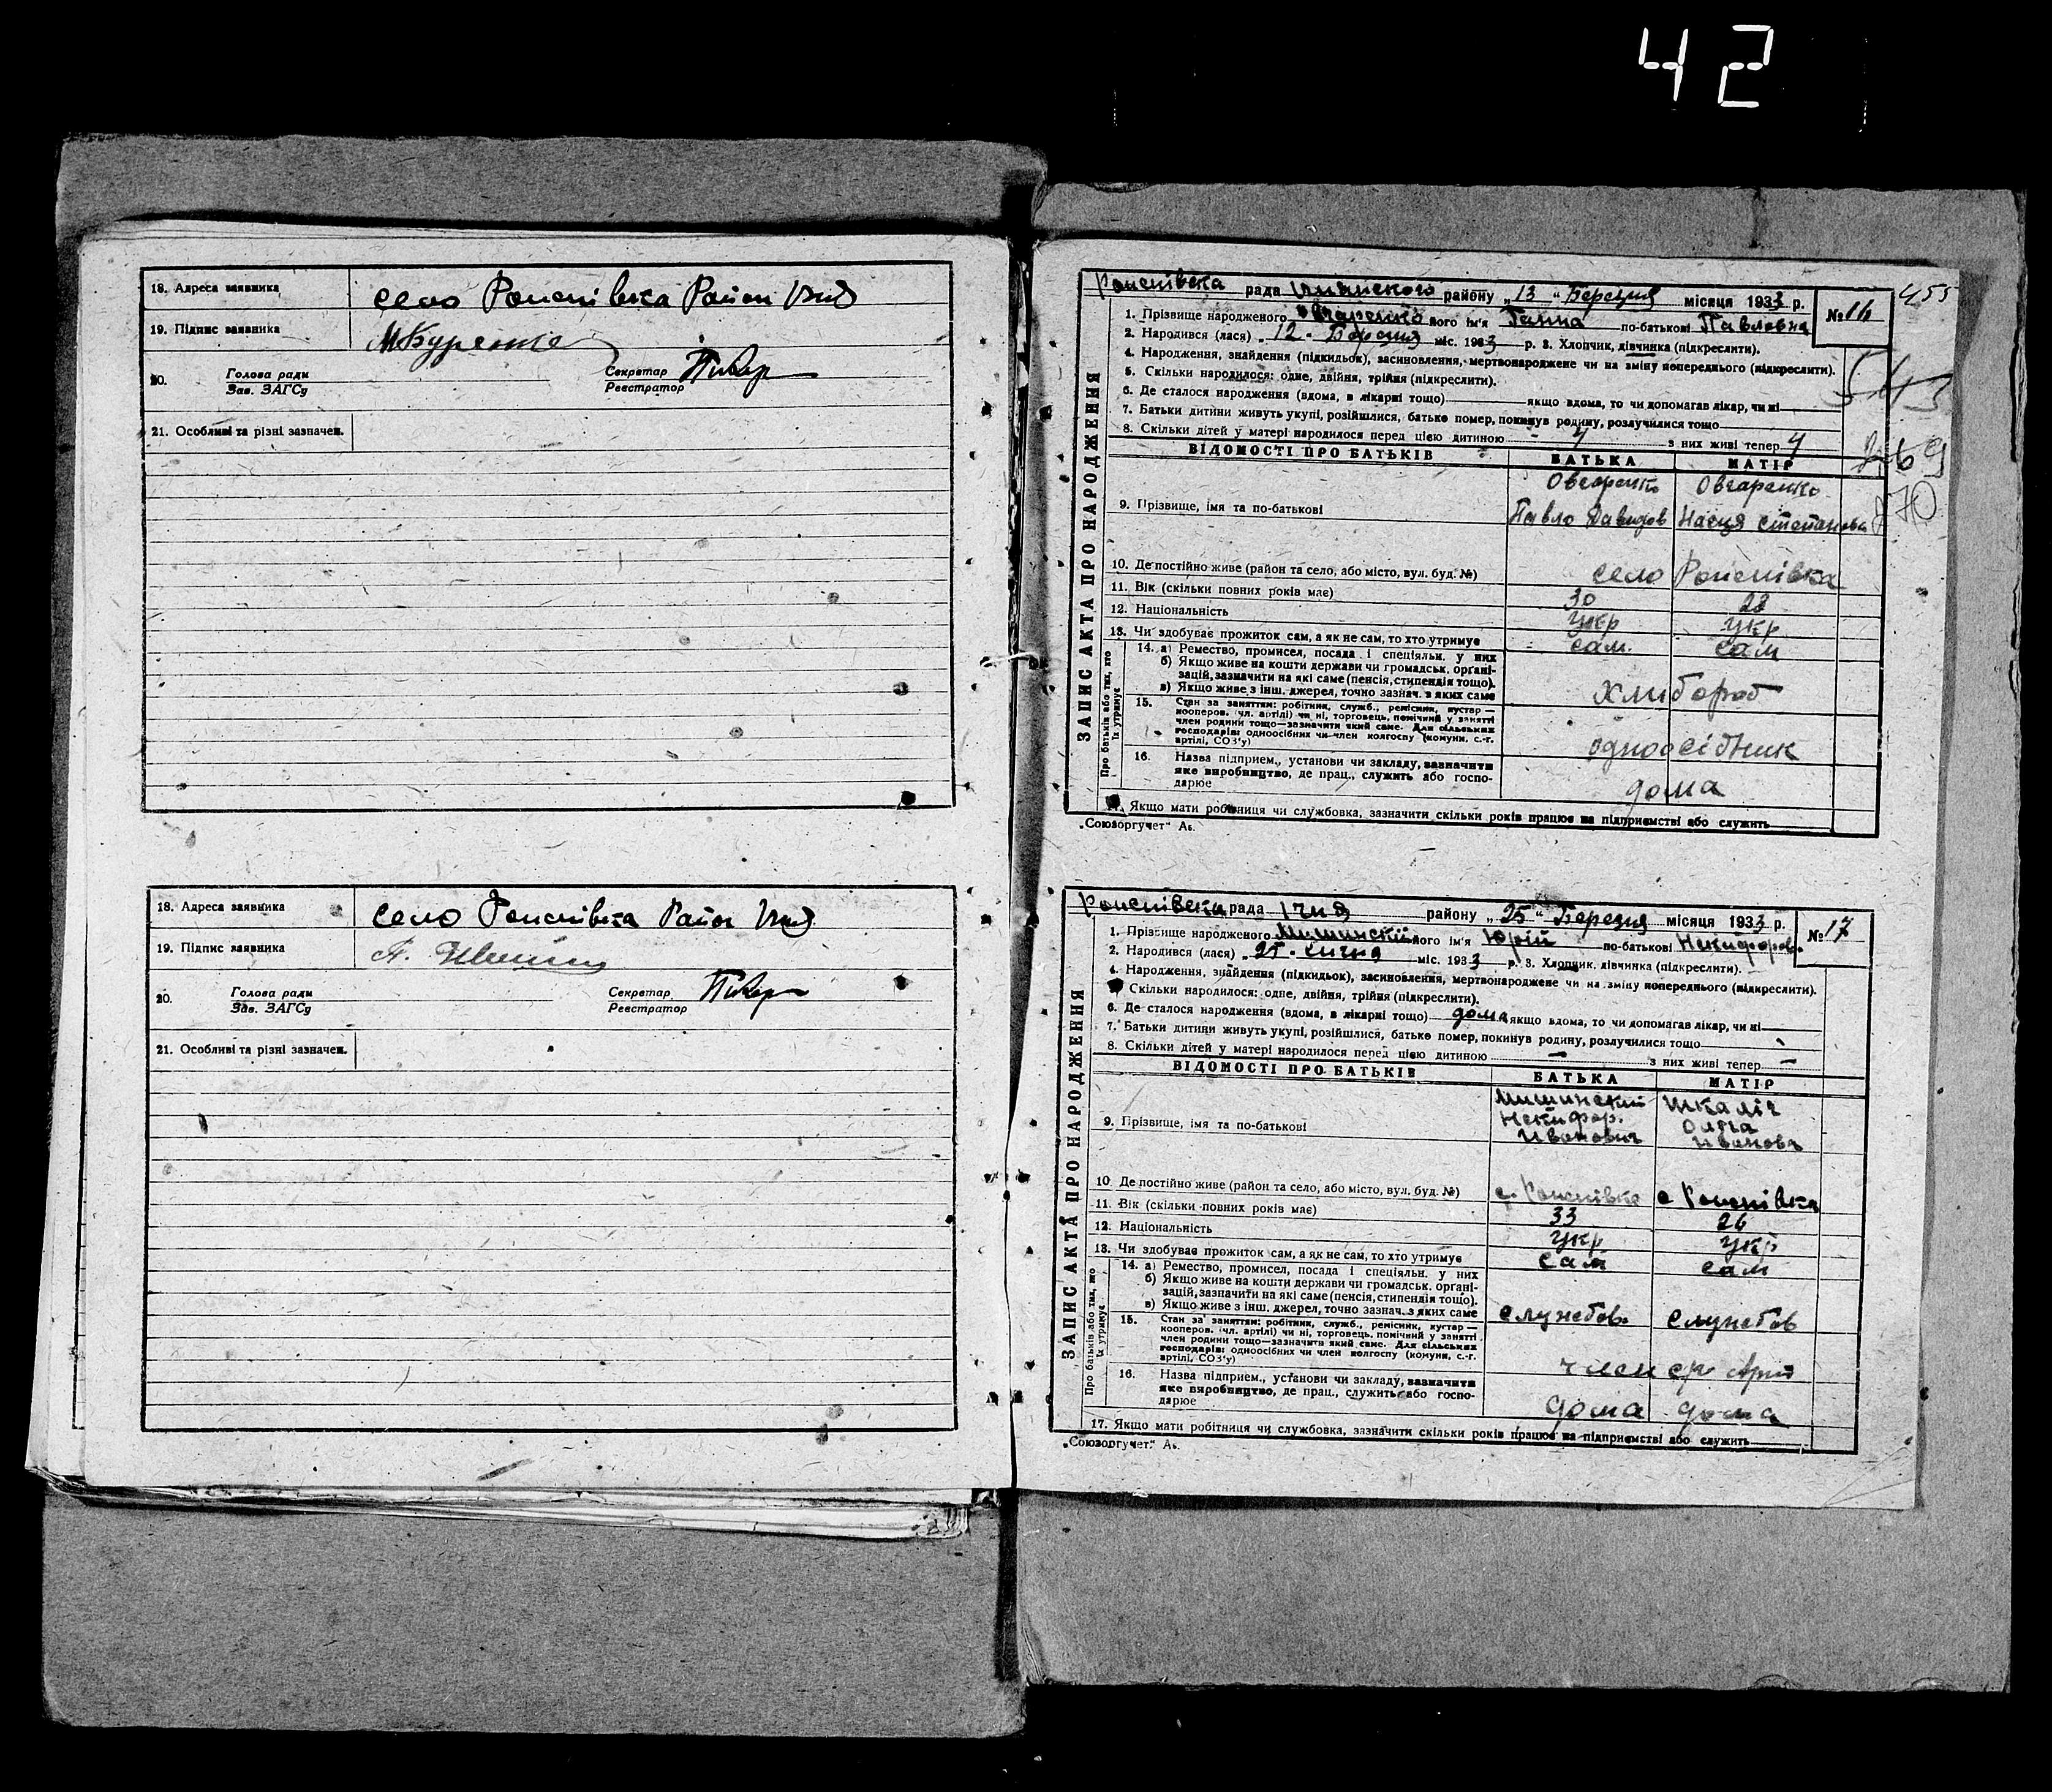 42
18. Адреса заявника село Рожнівка Район
19. Підпис заявника
20. Голова ради Секретар
Зав. ЗАГСу Реєстратор
21. Особливі та різні зазначен.
18. Адреса заявника село Район
19. Підпис заявника
20. Голова ради Секретар
Зав. ЗАГСу Реєстратор
21. Особливі та різні зазначен.
455
рада району „13“ Березня місяця 1933 р. № 16
1. Прізвище народженого Овчаренко його ім'я Ганна по-батькові Павловна
2. Народився (лася) „12 - Березня міс. 1933 р. 3. Хлопчик, дівчинка (підкреслити).
4. Народження, знайдення (підкидьок), засиновлення, мертвонароджене чи на зміну попереднього (підкреслити).
5. Скільки народилося: одне, двійня, трійня (підкреслити).
6. Де сталося народження (вдома, в лікарні тощо) якщо вдома, то чи допомагав лікар, чи ні
7. Батьки дитини живуть укупі, розійшлися, батько помер, покинув родину, розлучилися тощо
8. Скільки дітей у матері народилося перед цією дитиною - 4 з них живі тепер 4
ВІДОМОСТІ ПРО БАТЬКІВ БАТЬКА МАТІР
ЗАПИС АКТА ПРО НАРОДЖЕННЯ
9. Прізвище, імя та по-батькові Овчаренко Павло Давидов Овчаренко Настя Степановн
10. Де постійно живе (район та село, або місто, вул. буд. №) село
11. Вік (скільки повних років має) 30 28
12. Національність укр укр
13. Чи здобуває прожиток сам, а як не сам, то хто утримує сам. сам
Про батьків або тих, хто їх утримує
14. а) Ремество, промисел, посада і спеціяльн. у них
б) Якщо живе на кошти держави чи громадськ. органі-
зацій, зазначити на які саме (пенсія, стипендія тощо).
в) Якщо живе з інш. джерел, точно зазнач. з яких саме хлибороб
15. Стан за заняттям: робітник, служб., ремісник, кустар —
кооперов. (чл. артілі) чи ні, торговець, помічний у занятті
член родини тощо—зазначити який саме. Для сільських
господарів: одноосібних чи член колгоспу (комуни, с.-г.
артілі, СОЗ'у) одноосібник
16. Назва підприєм., установи чи закладу, зазначити
яке виробництво, де прац., служить або госпо-
дарює дома
17. Якщо мати робітниця чи службовка, зазначити скільки років працює на підприємстві або служить
„Союзоргучет“ Аб.
рада Ічня району „25“ Березня місяця 1933 р. № 17
1. Прізвище народженого його ім'я Юрій по-батькові
2. Народився (лася) „25 - сичня міс. 1933 р. 3. Хлопчик, дівчинка (підкреслити).
4. Народження, знайдення (підкидьок), засиновлення, мертвонароджене чи на зміну попереднього (підкреслити).
Скільки народилося: одне, двійня, трійня (підкреслити).
6. Де сталося народження (вдома, в лікарні тощо) дома якщо вдома, то чи допомагав лікар, чи ні
7. Батьки дитини живуть укупі, розійшлися, батько помер, покинув родину, розлучилися тощо
8. Скільки дітей у матері народилося перед цією дитиною — з них живі тепер —
ВІДОМОСТІ ПРО БАТЬКІВ БАТЬКА МАТІР
ЗАПИС АКТА ПРО НАРОДЖЕННЯ
9. Прізвище, імя та по-батькові Некифор. Иванович Ольга
10. Де постійно живе (район та село, або місто, вул. буд. №) с. с
11. Вік (скільки повних років має) 33 26
12. Національність укр укр
13. Чи здобуває прожиток сам, а як не сам, то хто утримує сам сам
Про батьків або тих, хто їх утримує
14. а) Ремество, промисел, посада і спеціяльн. у них
б) Якщо живе на кошти держави чи громадськ. органі-
зацій, зазначити на які саме (пенсія, стипендія тощо).
в) Якщо живе з інш. джерел, точно зазнач. з яких саме служебов служебов
15. Стан за заняттям: робітник, служб., ремісник, кустар —
кооперов. (чл. артілі) чи ні, торговець, помічний у занятті
член родини тощо—зазначити який саме. Для сільських
господарів: одноосібних чи член колгоспу (комуни, с.-г.
артілі, СОЗ'у) член
16. Назва підприєм., установи чи закладу, зазначити
яке виробництво, де прац., служить або госпо-
дарює дома дома
17. Якщо мати робітниця чи службовка, зазначити скільки років працює на підприємстві або служить
„Союзоргучет“ Аб.